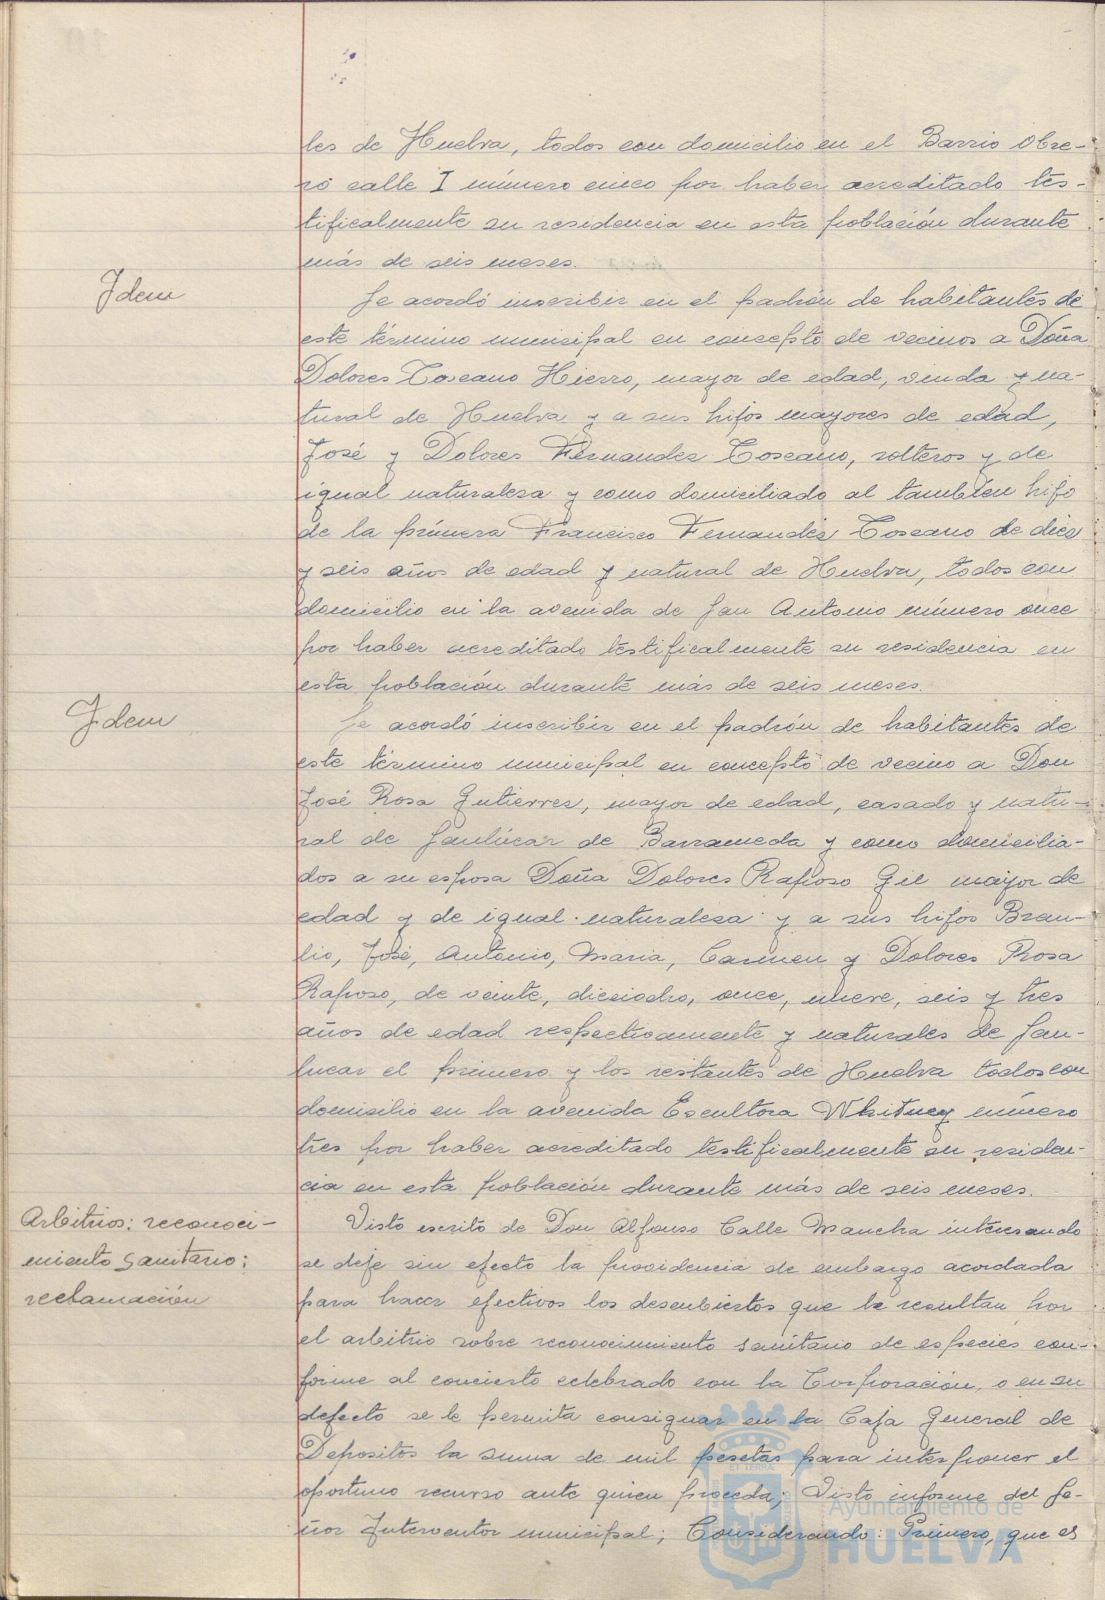 les de Huelva, todos con domicilio en el Barrio Obre-
ro calle I número cinco por haber acreditado tes-
tificalmente su residencia en esta población durante
más de seis meses.
Idem
Se acordó inscribir en el padrón de habitantes de
este término municipal en concepto de vecinos a Doña
Dolores Toscano Hierro, mayor de edad, viuda y na-
tural de Huelva y a sus hijos mayores de edad,
José y Dolores Fernandez Toscano, solteros y de
igual naturalesa y como domiciliado al tambien hijo
de la primera Francisco Fernandez Toscano de diez
y seis años de edad y natural de Huelva, todos con
domicilio en la avenida de San Antonio número once
por haber acreditado testificalmente su residencia en
esta población durante más de seis meses.
Idem
Se acordó inscribir en el padrón de habitantes de
este término municipal en concepto de vecino a Don
José Rosa Gutierrez, mayor de edad, casado y natu-
ral de Sanlúcar de Barrameda y como domicilia-
dos a su esposa Doña Dolores Raposo Gil mayor de
edad y de igual naturalesa y a sus hijos Brau-
lio, José, Antonio, Maria, Carmen y Dolores Rosa
Raposo, de veinte, dieciocho, once, nueve, seis y tres
años de edad respectivamente y naturales de San-
lucar el primero y los restantes de Huelva todos con
domicilio en la avenida Escultora Whitney número
tres por haber acreditado testificalmente su residen-
cia en esta población durante más de seis meses.
Arbitrios: reconoci-
miento sanitario:
reclamación
Visto escrito de Don Alfonso Calle Mancha interesando
se deje sin efecto la providencia de embargo acordada
para hacer efectivos los descubiertos que le resultan por
el arbitrio sobre reconocimiento sanitario de especies con-
forme al concierto celebrado con la Corporación, o en su
defecto se le permita consignar en la Caja General de
Depositos la suma de mil pesetas para interponer el
oportuno recurso ante quien proceda; Visto informe del Se-
ñor Interventor municipal; Considerando: Primero, que es
Ayuntamiento de
HUELVA